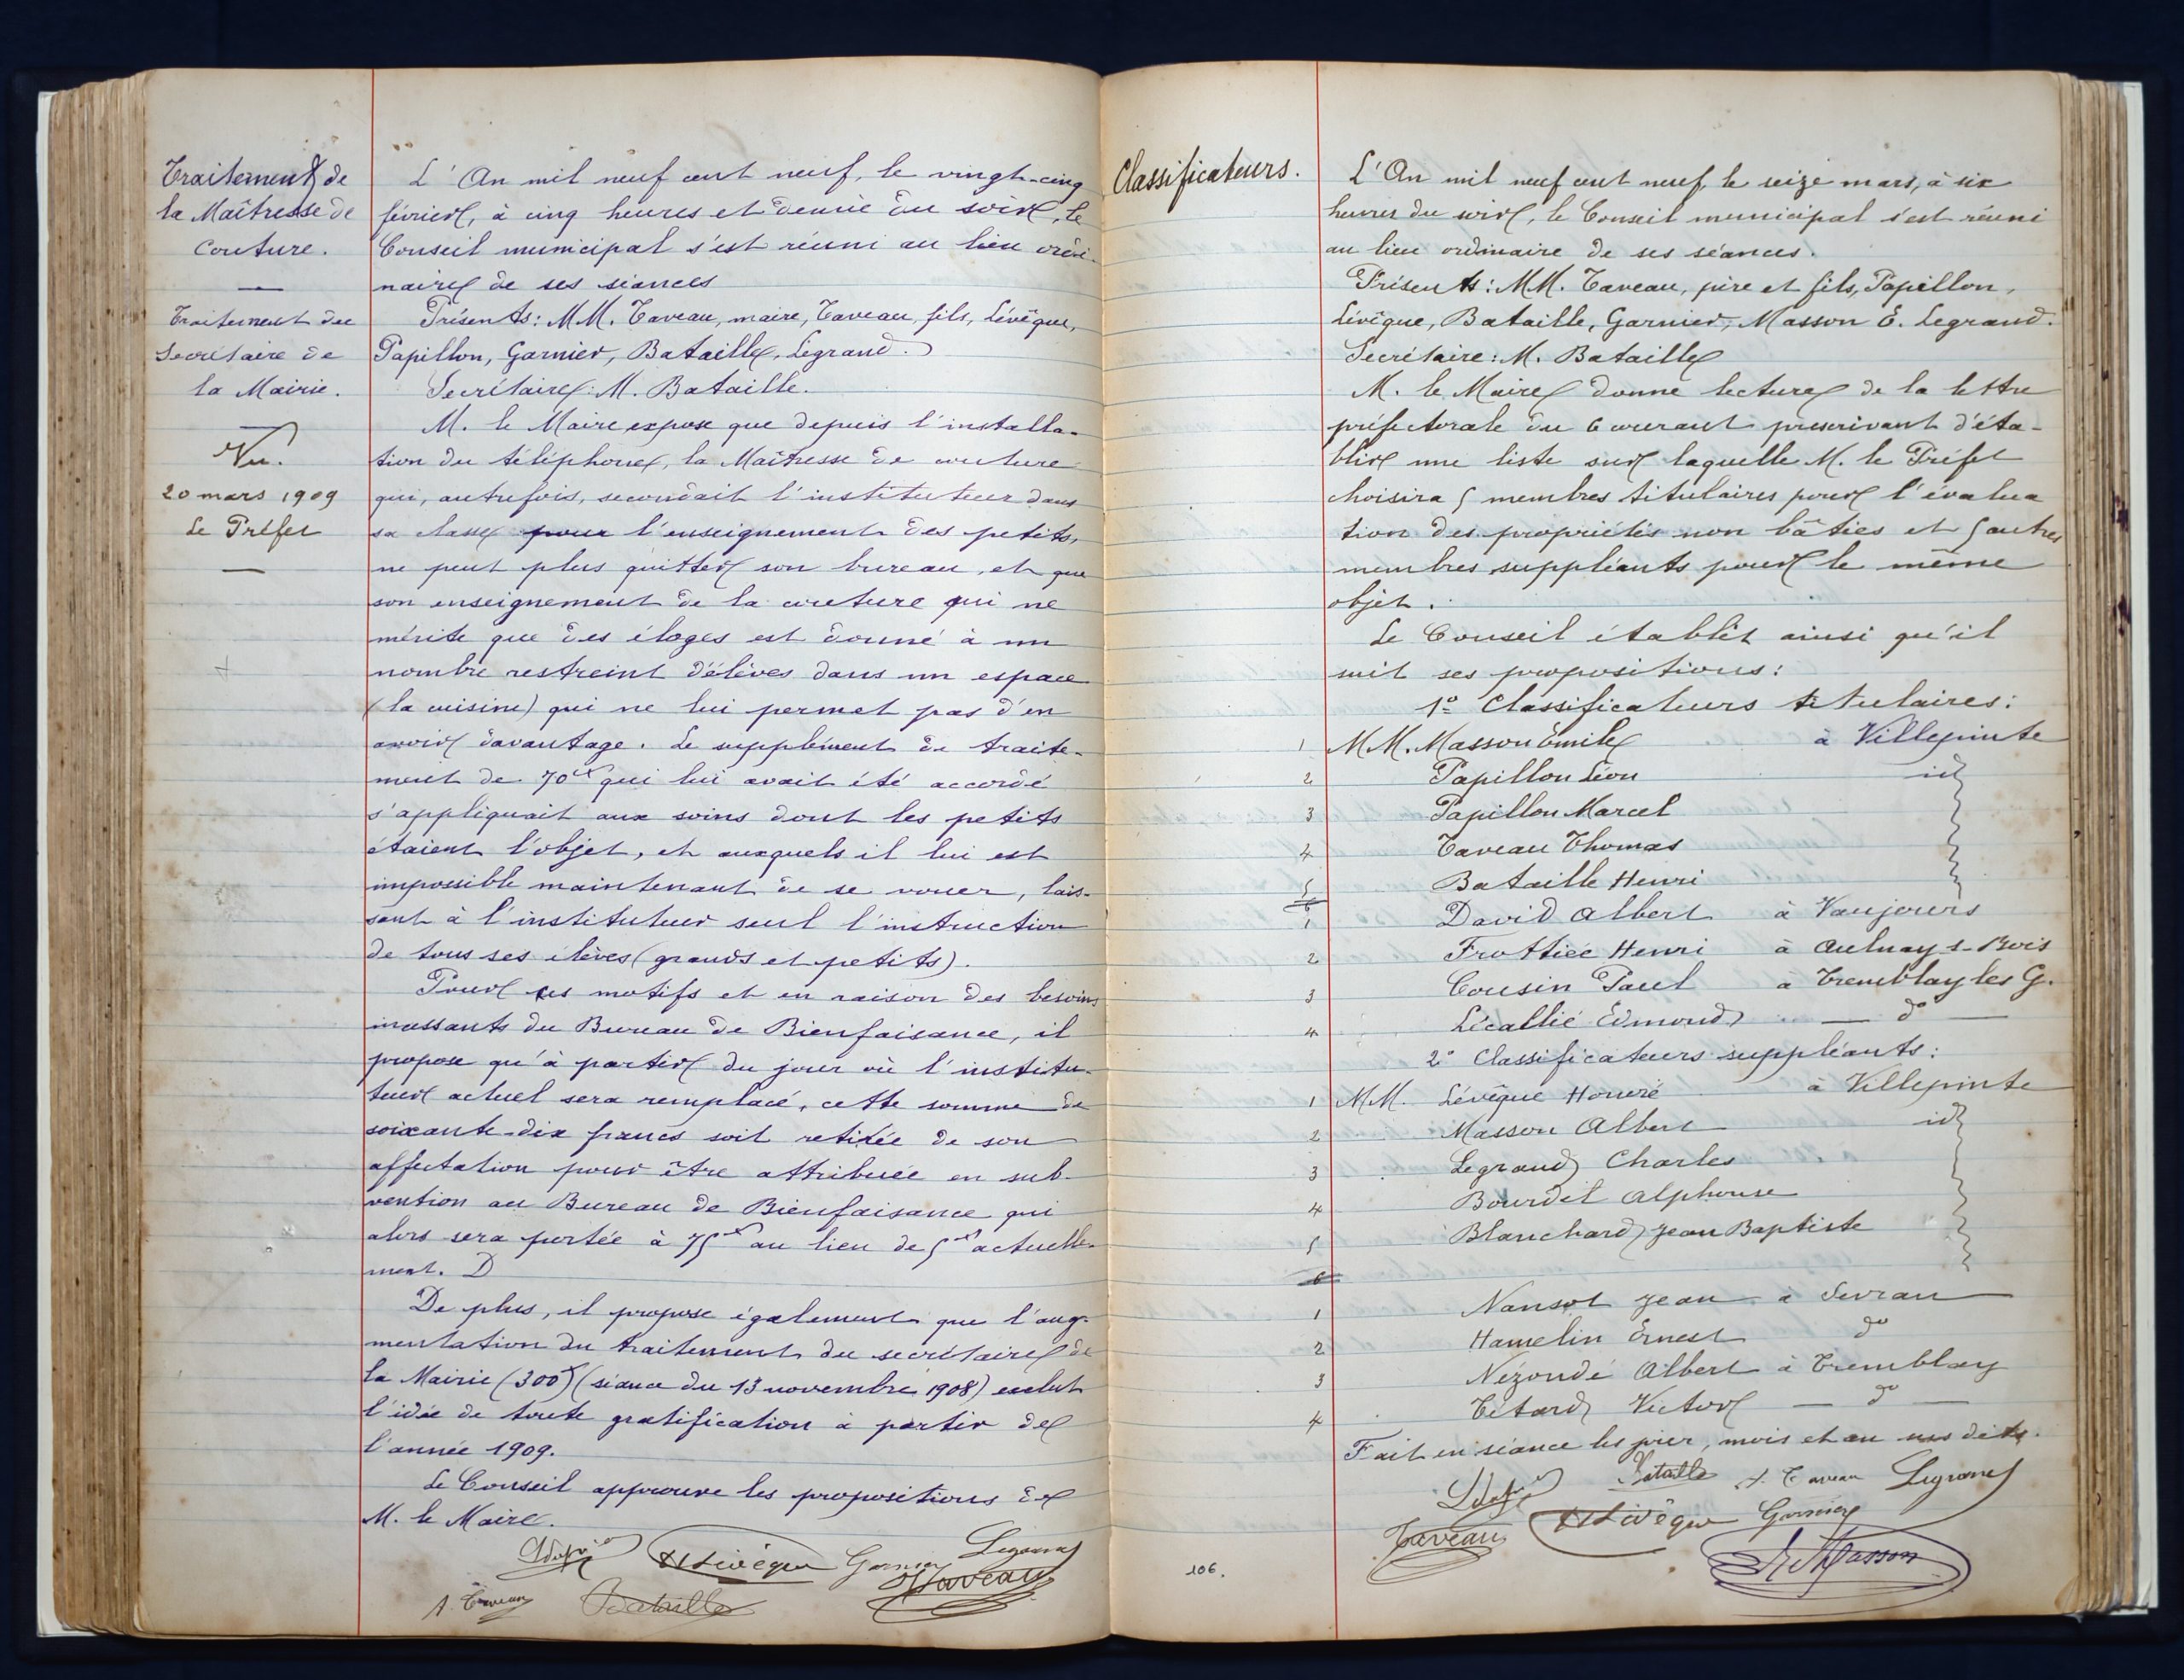 Traitement de
la Maîtresse de
Couture.
Traitement du
Secrétaire de
la Mairie.
Vu.
20 mars 1909
Le Préfet
L'An mil neuf cent neuf, le vingt-cinq
février, à cinq heures et demie du soir, le
Conseil municipal s'est réuni au lieu ordi-
naire de ses séances
Présents: MM. Taveau, maire, Taveau, fils, Lévêque,
Papillon, Garnier, Bataille, Legrand.
Secrétaire: M. Bataille.
M. le Maire expose que depuis l'installa-
tion du téléphone, la Maîtresse de couture
qui, autrefois, secondait l'instituteur dans
sa classe pour l'enseignement des petits,
ne peut plus quitter son bureau, et que
son enseignement de la couture qui ne
mérite que des éloges est donné à un
nombre restreint d'élèves dans un espace
(la cuisine) qui ne lui permet pas d'en
avoir davantage. Le supplément de traite-
ment de 70 qui lui avait été accordé
s'appliquait aux soins dont les petits
étaient l'objet, et auxquels il lui est
impossible maintenant de se vouer, lais-
sant à l'instituteur seul l'instruction
de tous ses élèves (grands et petits).
Pour ces motifs et en raison des besoins
incessants du Bureau de Bienfaisance, il
propose qu'à partir du jour où l'institu-
teur actuel sera remplacé, cette somme de
soixante-dix francs soit retirée de son
affectation pour être attribuée en sub-
vention au Bureau de Bienfaisance qui
alors sera portée à 75 au lieu de 5 actuelle-
ment.
De plus, il propose également que l'aug-
mentation du traitement du secrétaire de
la Mairie (300f) (séance du 13 novembre 1908) exclut
l'idée de toute gratification à partir de
l'année 1909.
Le Conseil approuve les propositions de
M. le Maire.
H Lévêque Garnier Legrand
Taveau
A. Taveau Bataille
Classificateurs.
L'An mil neuf cent neuf, le seize mars, à six
heures du soir, le Conseil municipal s'est réuni
au lieu ordinaire de ses séances.
Présents: MM. Taveau, père et fils, Papillon,
Lévêque, Bataille, Garnier, Masson E. Legrand.
Secrétaire: M. Bataille
M. le Maire donne lecture de la lettre
préfectorale du 6 courant prescrivant d'éta-
blir une liste sur laquelle M. le Préfet
choisira 5 membres titulaires pour l'évalua
tion des propriétés non bâties et 5 autres
membres suppléants pour le même
objet.
Le Conseil établit ainsi qu'il
suit ses propositions:
1º Classificateurs titulaires:
1 MM. Masson Emile à Villepinte
2 Papillon Léon id
3 Papillon Marcel
4 Taveau Thomas
5 Bataille Henri
1 David Albert à Vaujours
2 Frottiée Henri à Aulnay s-Bois
3 Cousin Paul à Tremblay les G.
4 Lécallié Edmond — dº —
2º Classificateurs suppléants:
1 MM. Lévêque Honoré à Villepinte
2 Masson Albert id
3 Legrand Charles
4 Bourdil Alphonse
5 Blanchard Jean Baptiste
1 Nansot Jean à Sevran
2 Hamelin Ernest dº
3 Nézondé Albert à Tremblay
4 Tétard Victor — dº —
Fait en séance les jour, mois et an susdits.
Bataille A. Taveau Legrand
Taveau H Lévêque Garnier
E Masson
106.